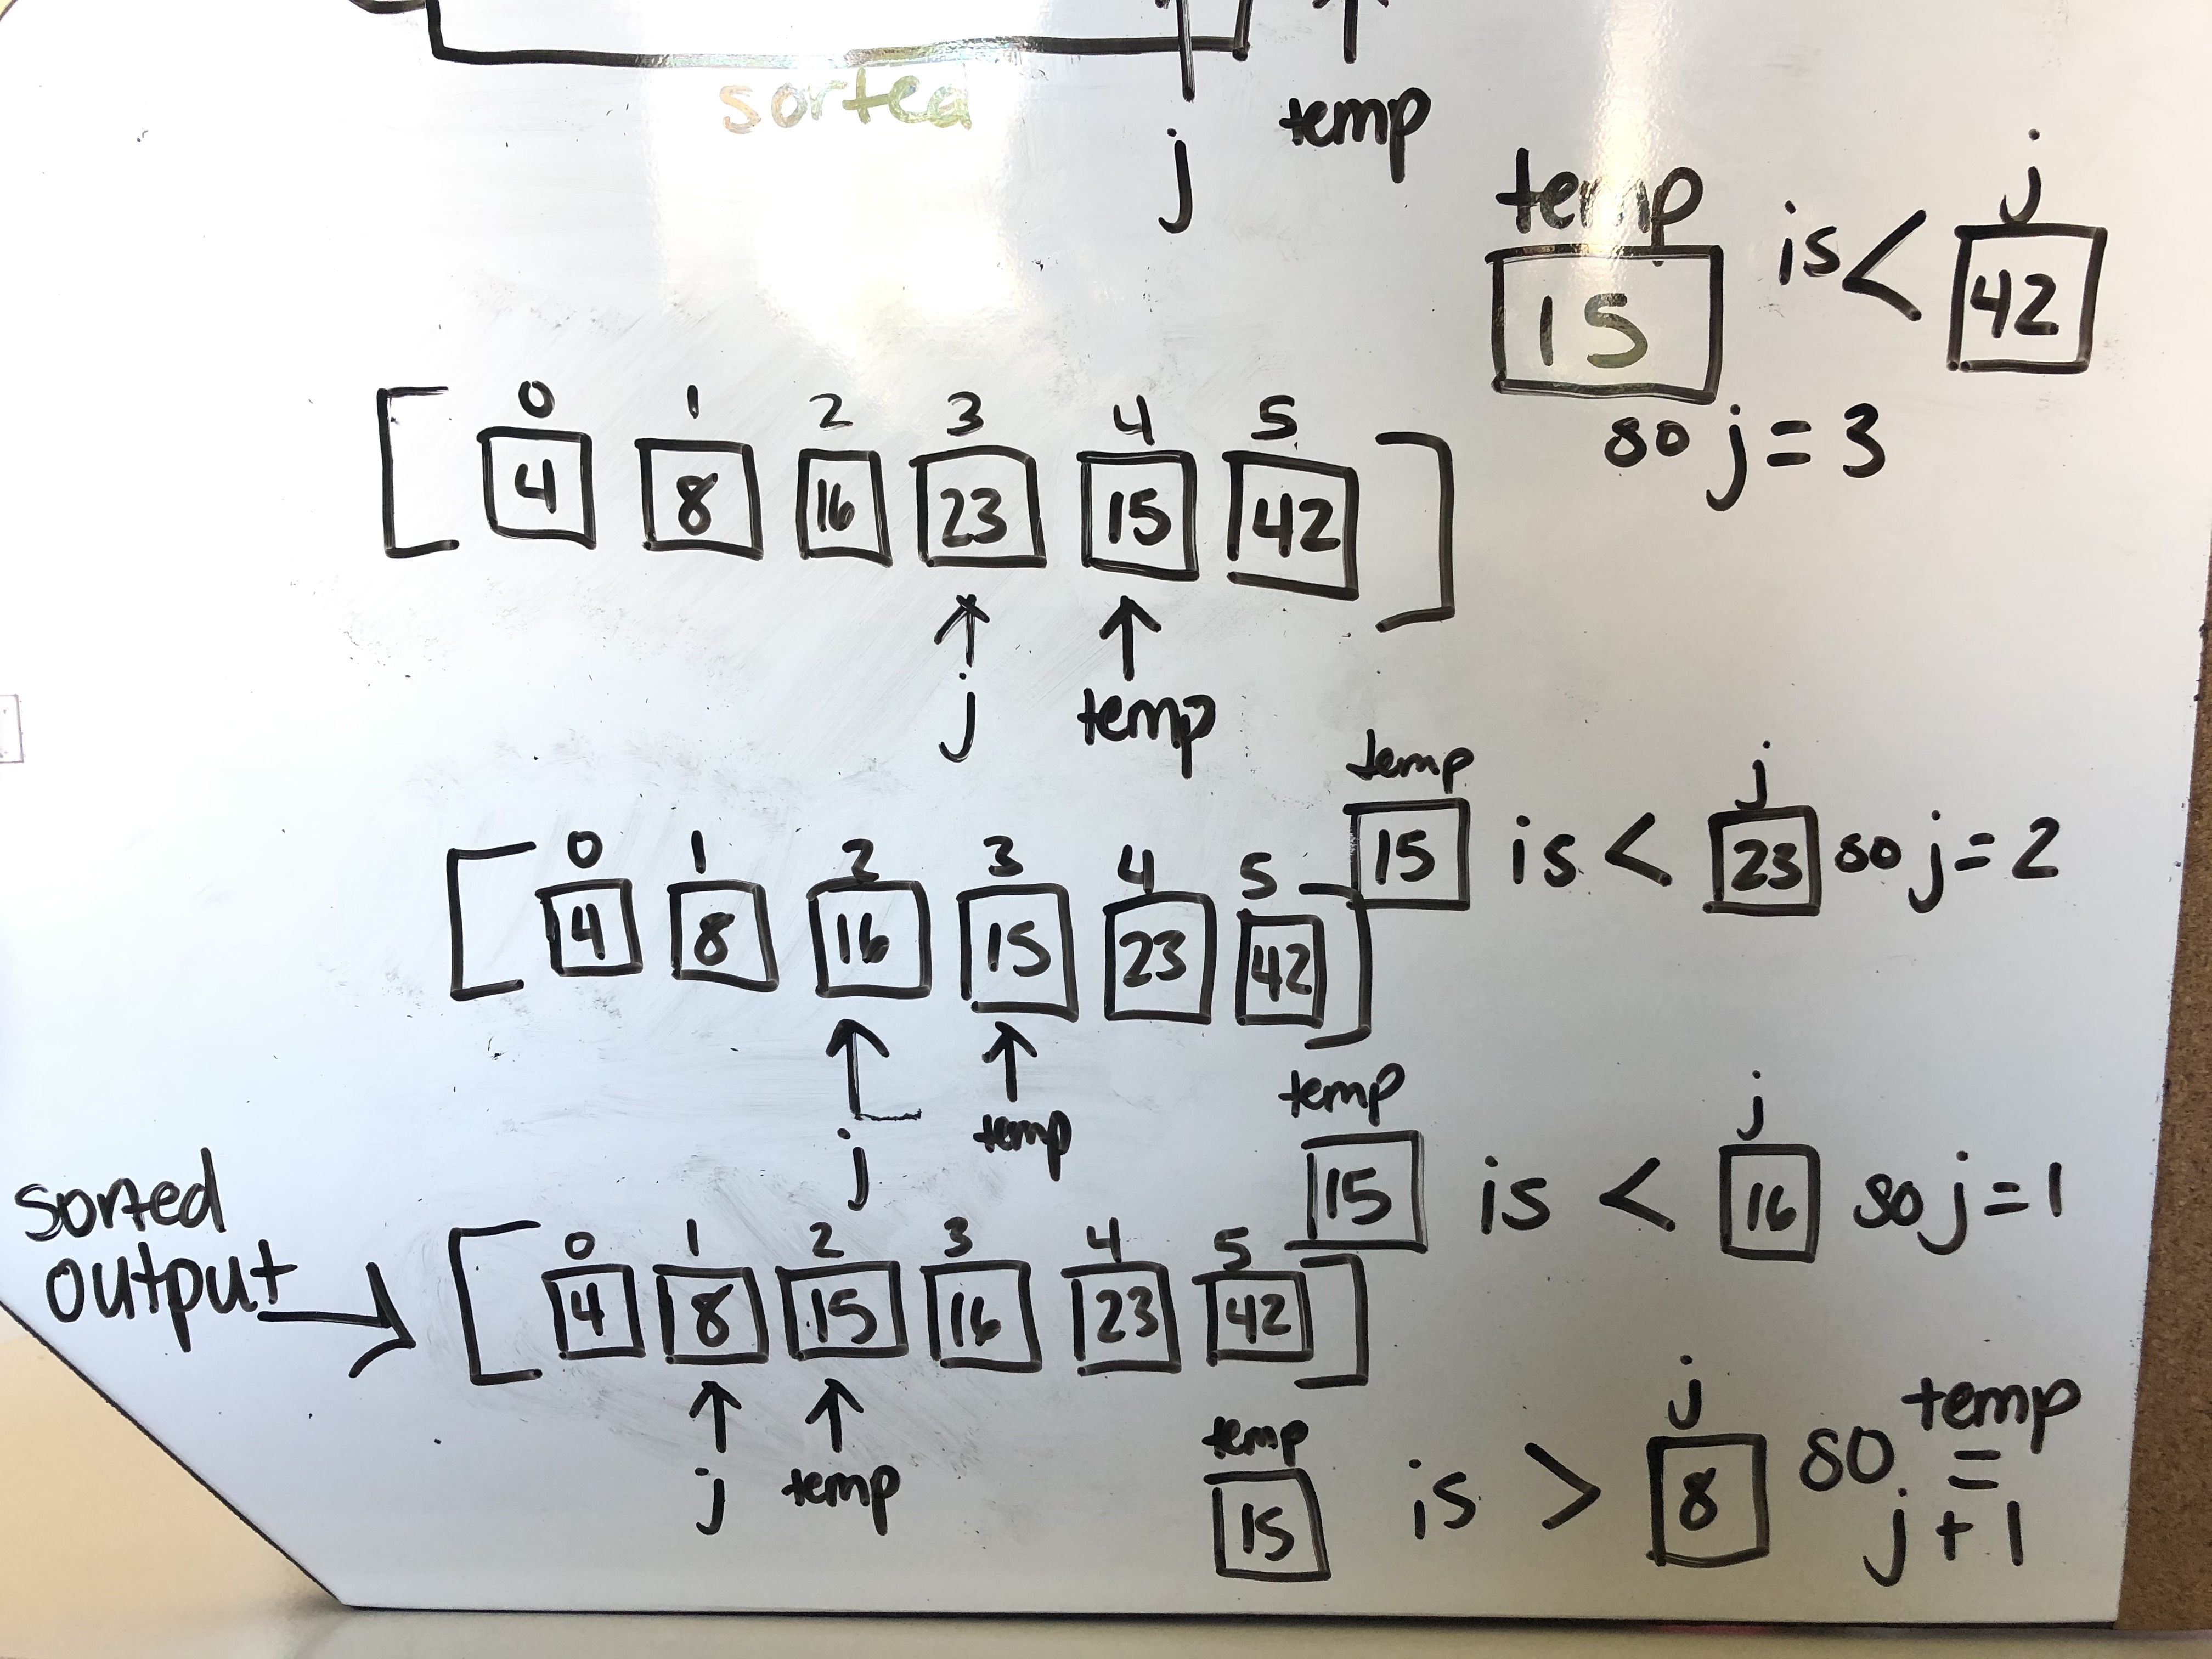 sorted
j temp
temp j
15 is < 42
so j = 3
0 1 2 3 4 5
[ 4 8 16 23 15 42 ]
j temp
temp j
15 is < 23 so j = 2
0 1 2 3 4 5
[ 4 8 16 15 23 42 ]
j temp
temp j
15 is < 16 so j = 1
sorted
output
0 1 2 3 4 5
[ 4 8 15 16 23 42 ]
j temp
temp j
15 is > 8 so temp
=
j + 1